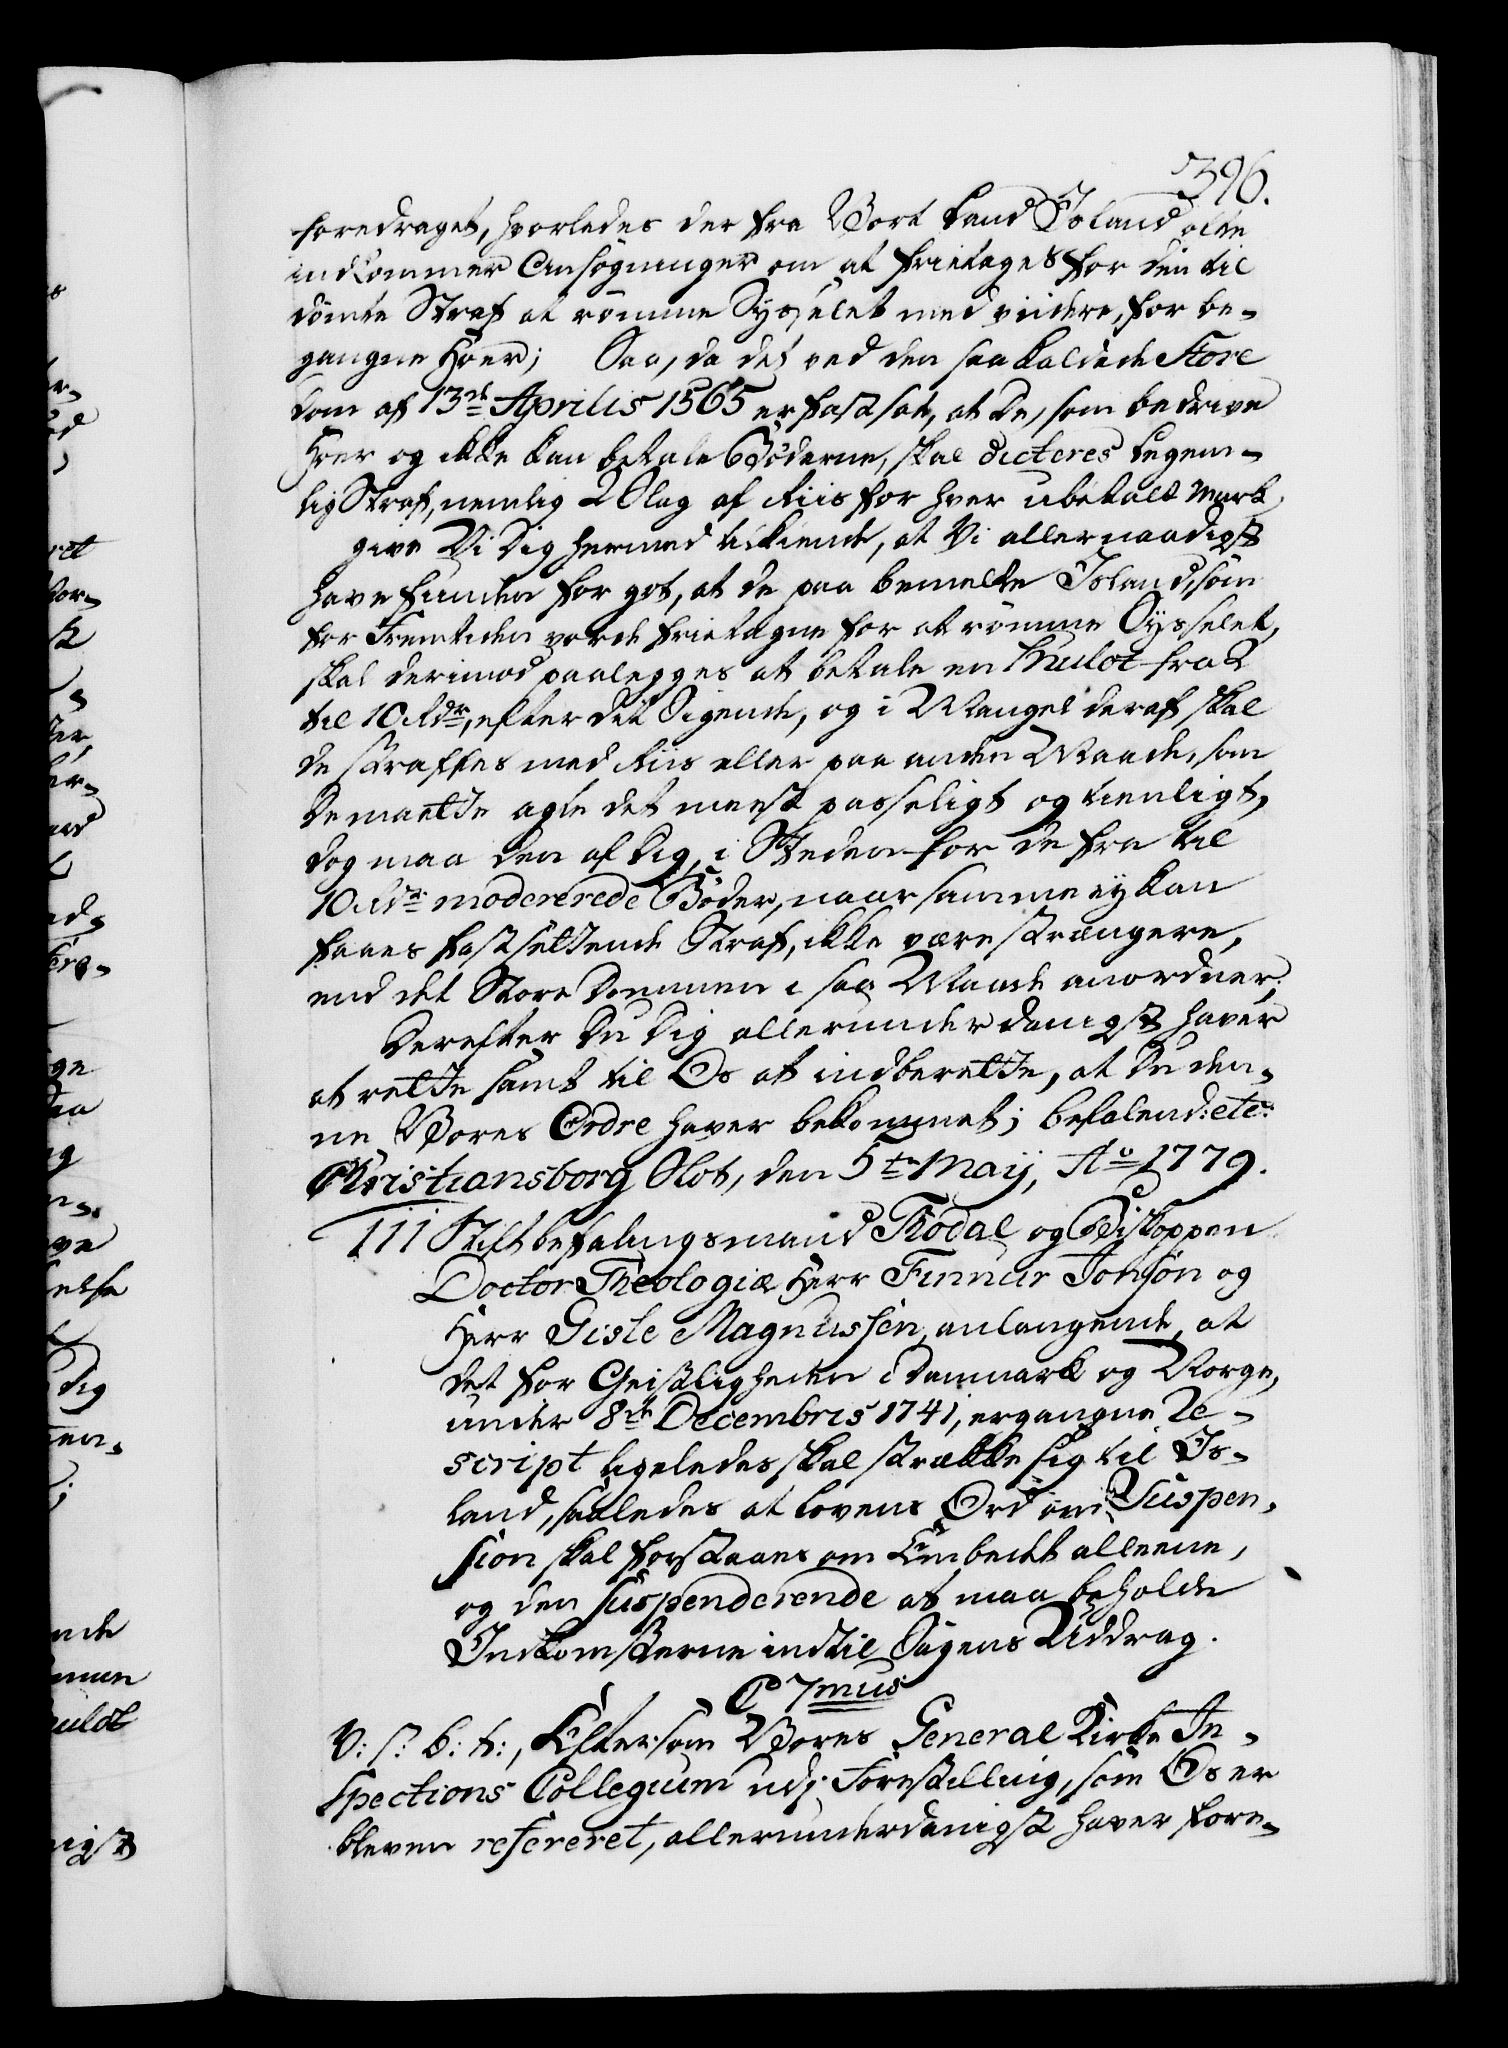 396.
foredraget, hvorledes der fra Vort Land Island ofte
indkommer Ansøgninger om at frietages for den til
dømte Straf at rømme Sysselet med videre, for be-
gangne Hoer; Saa, da det ved den saa kaldede Store
dom af 13de Aprilis 1565 er fastsat, at De, som bedrive
Hoer og ikke kan betale Bøderne, skal dicteres Legem-
lig Straf, nemlig 2 Slag af Riis for hver ubetalt Mark,
give Vi Dig hermed tilkiende, at Vi allernaadigst
have funden for got, at de paa bemelte Island, som
for Fremtiden vorde frietagne for at rømme Sysselet,
skal derimod paalegges at betale en Mulct fra 2
til 10 Rdr, efter dit Sigende, og i Mangel deraf skal
de straffes med Riis eller paa anden Maade, som
De maatte agte det meest passeligt og tienligt,
dog maa den af Dig, i Steden for de fra til
10 Rdr modererede Bøder, naar samme ey kan
faaes fastsettende Straf, ikke være strængere,
end det Store Dommen i saa Maade anordner;
Derefter Du Dig allerunderdanigst haver
at rette samt til Os at indberette, at Du den-
ne Vores Ordre haver bekommet; befalend: etc:
Christiansborg Slot, den 5te Maij, Ao 1779.
111 Stiftbefalingsmand Thodal og Biskoppen
Doctor Theologiæ Herr Finnur Jonsøn og
Herr Gisle Magnussen, anlangende, at
det for Geistligheden i Danmark og Norge,
under 8de Decembris 1741, ergangne Re-
script ligeledes skal strække sig til Is-
land, saaledes at Lovens Ord om Suspen-
sion skal forstaaes om Embedet alleene,
og den suspenderende at maa beholde
Indkomsterne indtil Sagens Uddrag.
C 7mus
V: S: B: T:, Eftersom Vores General Kirke In-
spections Collegium udj Forestilling, som Os er
bleven refereret, allerunderdanigst haver fore-